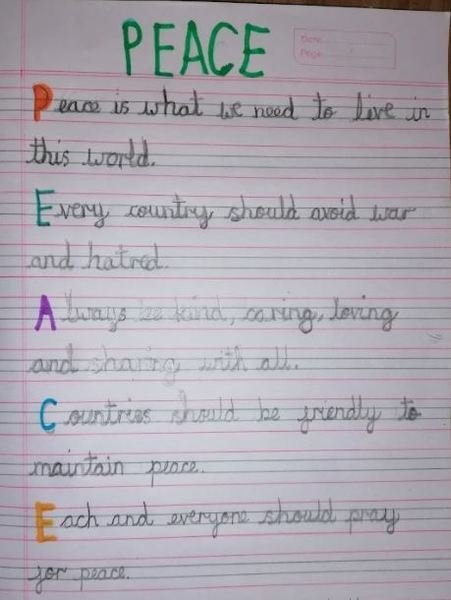 PEACE
Date
Page
Peace is what we need to live in
this world.
Every country should avoid war
and hatred.
Always be kind, caring, loving
and sharing with all.
Countries should be friendly to
maintain peace.
Each and everyone should pray
for peace.